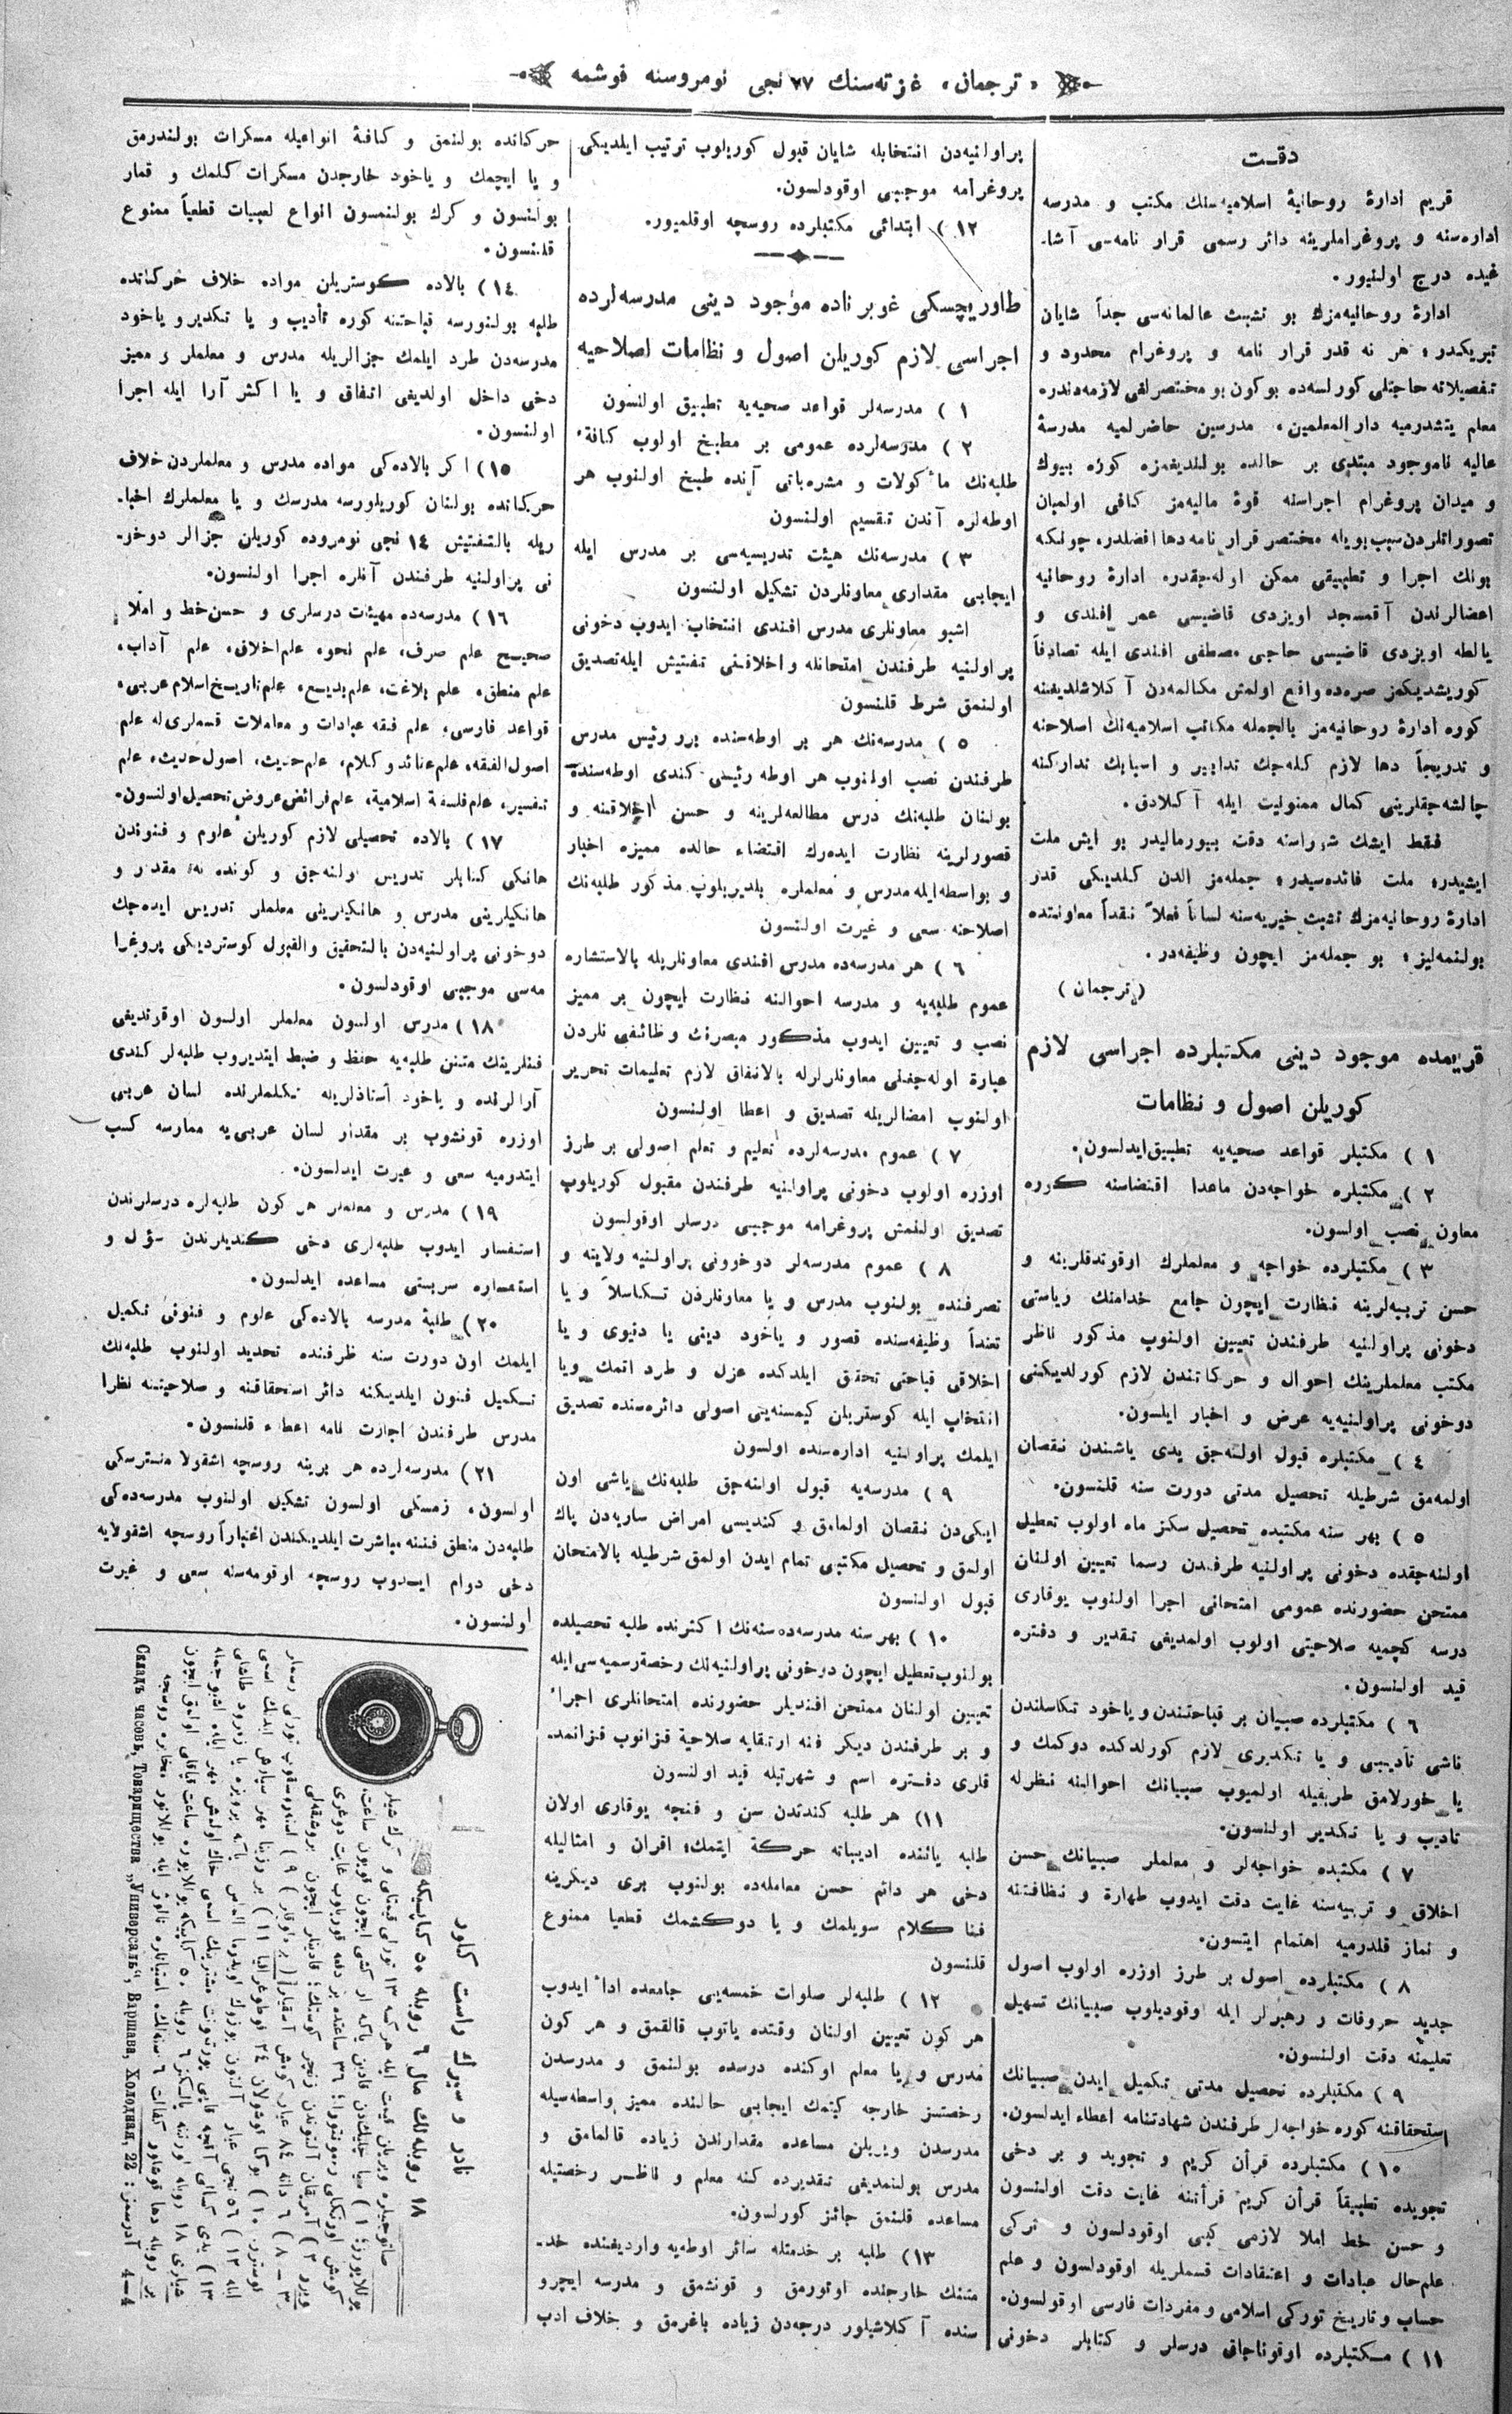 «ترجمان» غزته‌سنك ٧٧ نجی نومروسنه قوشمه
دقـت
قریم ادارهٔ روحانیهٔ اسلامیه‌سنك مكتب و مدرسه
اداره‌سنه و پروغراملرینه دائر رسمی قرار نامه‌سی آشا-
غیده درج اولنیور.
ادارهٔ روحانیه‌مزك بو تشبث عالمانه‌سی جداً شایان
تبریكدر؛ هر نه قدر قرار نامه و پروغرام محدود و
تفصیلاته حاجتلی كورلسه‌ده بوكون بو مختصرلغی لازمه‌دندر.
معلم یتشدرمیه دارالمعلمین، مدرسین حاضرلمیه مدرسهٔ
عالیه ناموجود مبتدی بر حالده بولندیغمزه كوره بیوك
و میدان پروغرام اجراسنه قوهٔ مالیه‌مز كافی اولمیان
تصوراتلردن سبب بویله مختصر قرار نامه دها افضلدر. چونكه
بونك اجرا و تطبیقی ممكن اوله‌جقدر. ادارهٔ روحانیه
اعضالرندن آقمسجد اویزدی قاضیسی عمر افندی و
یالطه اویزدی قاضیسی حاجی مصطفی افندی ایله تصادفاً
كوریشدیكمز صره‌ده واقع اولمش مكالمه‌دن آكلاشلدیغنه
كوره ادارهٔ روحانیه‌مز بالجمله مكاتب اسلامیه‌نك اصلاحنه
و تدریجاً دها لازم كله‌جك تدابیر و اسبابك تداركنه
چالشه‌جقلرینی كمال ممنونیت ایله آكلادق.
فقط ایشك شوراسنه دقت بیورمالیدر بو ایش ملت
ایشیدر؛ ملت فائده‌سیدر؛ جمله‌مز الدن كلدیكی قدر
ادارهٔ روحانیه‌مزك تشبث خیریه‌سنه لساناً فعلاً نقداً معاونتده
بولنمه‌لیز؛ بو جمله‌مز ایچون وظیفه‌در.
(ترجمان)
قریمده موجود دینی مكتبلرده اجراسی لازم
كوریلن اصول و نظامات
١ ) مكتبلر قواعد صحیه‌یه تطبیق ایدلسون.
٢ ) مكتبلره خواجه‌دن ماعدا اقتضاسنه كوره
معاون نصب اولسون.
٣ ) مكتبلرده خواجه و معلملرك اوقوندقلرینه و
حسن تربیه‌لرینه نظارت ایچون جامع خدامنك ریاستی
دخونی پراولنیه طرفندن تعیین اولنوب مذكور ناظر
مكتب معلملرینك احوال و حركاتندن لازم كورلدیكنی
دوخونی پراولنیه‌یه عرض و اخبار ایلسون.
٤ ) مكتبلره قبول اولنه‌جق یدی یاشندن نقصان
اولمه‌مق شرطیله تحصیل مدتی دورت سنه قلنسون.
٥ ) بهر سنه مكتبده تحصیل سكز ماه اولوب تعطیل
اولنه‌جقده دخونی پراولنیه طرفندن رسما تعیین اولنان
ممتحن حضورنده عمومی امتحانی اجرا اولنوب یوقاری
درسه كچمیه صلاحیتی اولوب اولمدیغی تقدیر و دفتره
قید اولنسون.
٦ ) مكتبلرده صبیان بر قباحتندن و یاخود تكاسلندن
ناشی تأدیبی و یا تكدیری لازم كورلدكده دوكمك و
یا خورلامق طریقیله اولمیوب صبیانك احوالنه نظرله
تادیب و یا تكدیر اولنسون.
٧ ) مكتبده خواجه‌لر و معلملر صبیانك حسن
اخلاق و تربیه‌سنه غایت دقت ایدوب طهارة و نظافتنه
و نماز قلدرمیه اهتمام ایتسون.
٨ ) مكتبلرده اصول بر طرز اوزره اولوب اصول
جدید حروفات و رهبرلر ایله اوقودیلوب صبیانك تسهیل
تعلیمنه دقت اولنسون.
٩ ) مكتبلرده تحصیل مدتی تكمیل ایدن صبیانك
استحقاقنه كوره خواجه‌لر طرفندن شهادتنامه اعطاء ایدلسون.
١٠ ) مكتبلرده قرأن كریم و تجوید و بر دخی
تجویده تطبیقاً قرأن كریم قرأتنه غایت دقت اولنسون
و حسن خط املا لازمی كبی اوقودلسون و تركی
علم‌حال عبادات و اعتقادات قسملریله اوقودلسون و علم
حساب و تاریخ توركی اسلامی و مفردات فارسی اوقولسون.
١١ ) مكتبلرده اوقوناجاق درسلر و كتابلر دخونی
پراولنیه‌دن انتخابله شایان قبول كوریلوب ترتیب ایلدیكی
پروغرامه موجبی اوقودلسون.
١٢ ) ابتدائی مكتبلرده روسچه اوقلمیور.
طاوریچسكی غوبرناده موجود دینی مدرسه‌لرده
اجراسی لازم كوریلن اصول و نظامات اصلاحیه
١ ) مدرسه‌لر قواعد صحیه‌یه تطبیق اولنسون
٢ ) مدرسه‌لرده عمومی بر مطبخ اولوب كافهٔ
طلبه‌نك مأكولات و مشروباتی آنده طبخ اولنوب هر
اوطه‌لره آندن تقسیم اولنسون
٣ ) مدرسه‌نك هیئت تدریسیه‌سی بر مدرس ایله
ایجابی مقداری معاونلردن تشكیل اولنسون
اشبو معاونلری مدرس افندی انتخاب ایدوب دخونی
پراولنیه طرفندن امتحانله و اخلاقنی تفتیش ایله تصدیق
اولنمق شرط قلنسون
٥ ) مدرسه‌نك هر بر اوطه‌سنده برر رئیس مدرس
طرفندن نصب اولنوب هر اوطه رئیسی كندی اوطه‌سنده
بولنان طلبه‌نك درس مطالعه‌لرینه و حسن اخلاقنه و
قصورلرینه نظارت ایدەرك اقتضاء حالده ممیزه اخبار
و بواسطه ایله مدرس و معلملره بلدیریلوب مذكور طلبه‌نك
اصلاحنه سعی و غیرت اولنسون
٦ ) هر مدرسه‌ده مدرس افندی معاونلریله بالاستشاره
عموم طلبه‌یه و مدرسه احوالنه نظارت ایچون بر ممیز
نصب و تعیین ایدوب مذكور مبصرك وظائفی نلردن
عبارة اوله‌جغنی معاونلرله بالاتفاق لازم تعلیمات تحریر
اولنوب امضالریله تصدیق و اعطا اولنسون
٧ ) عموم مدرسه‌لرده تعلیم و تعلم اصولی بر طرز
اوزره اولوب دخونی پراولنیه طرفندن مقبول كوریلوب
تصدیق اولنمش پروغرامه موجبی درسلر اوقولسون
٨ ) عموم مدرسه‌لر دوخوونی پراولنیه ولایته و
تصرفنده بولنوب مدرس و یا معاونلردن تكاسلاً و یا
تعنداً وظیفه‌سنده قصور و یاخود دینی یا دنیوی و یا
اخلاقی قباحتی تحقق ایلدكده عزل و طرد اتمك ویا
انتخاب ایله كوستریلان كیمسه‌یی اصولی دائره‌سنده تصدیق
ایلمك پراولنیه اداره‌سنده اولسون
٩ ) مدرسه‌یه قبول اولنه‌جق طلبه‌نك یاشی اون
ایكی‌دن نقصان اولمامق و كندیسی امراض ساریه‌دن پاك
اولمق و تحصیل مكتبی تمام ایدن اولمق شرطیله بالامتحان
قبول اولنسون
١٠ ) بهر سنه مدرسه‌ده سنه‌نك اكثرنده طلبه تحصیلده
بولنوب تعطیل ایچون دوخونی پراولنیه‌نك رخصة رسمیه‌سی ایله
تعیین اولنان ممتحن افندیلر حضورنده امتحانلری اجراء
و بر طرفندن دیكر فنه ارتقایه صلاحیة قزانوب قزانمد-
قلری دفتره اسم و شهرتیله قید اولنسون
١١) هر طلبه كندندن سن و فنجه یوقاری اولان
طلبه یاننده ادیبانه حركة ایتمك؛ اقران و امثالیله
دخی هر دائم حسن معامله‌ده بولنوب بری دیكرینه
فنا كلام سویلمك و یا دوكشمك قطعیا ممنوع
قلنسون
١٢ ) طلبه‌لر صلوات خمسه‌یی جامعده اداء ایدوب
هر كون تعیین اولنان وقتده یاتوب قالقمق و هر كون
مدرس و یا معلم اوكنده درسده بولنمق و مدرسدن
رخصتسز خارجه كیتمك ایجابی حالنده ممیز واسطه‌سیله
مدرسدن ویریلن مساعده مقدارندن زیاده قالمامق و
مدرس بولنمدیغی تقدیرده كنه معلم و ناظر رخصتیله
مساعده قلنمق جائز كورلسون.
١٣) طلبه بر خدمتله سائر اوطه‌یه واردیغنده خد-
متنك خارجنده اوتورمق و قونشمق و مدرسه ایچرو
سنده آكلاشیلور درجه‌دن زیاده باغرمق و خلاف ادب
حركاتده بولنمق و كافهٔ انواعیله مسكرات بولندرمق
و یا ایچمك و یاخود خارجدن مسكرات كلمك و قمار
بولنسون و كرك بولنمسون انواع لعبیات قطعیاً ممنوع
قلنسون.
١٤) بالاده كوستریلن مواده خلاف حركاتده
طلبه بولنورسه قباحتنه كوره تأدیب و یا تكدیر و یاخود
مدرسه‌دن طرد ایلمك جزالریله مدرس و معلملر و ممیز
دخی داخل اولدیغی اتفاق و یا اكثر آرا ایله اجرا
اولنسون.
١٥) اكر بالاده‌كی مواده مدرس و معلملردن خلاف
حركاتده بولنان كوریلورسه مدرسك و یا معلملرك اخبا-
ریله بالتفتیش ١٤ نجی نومروده كوریلن جزالر دوخو-
نی پراولنیه طرفندن آنلره اجرا اولنسون.
١٦) مدرسه‌ده مهیئات درسلری و حسن خط و املا
صحیح علم صرف، علم نحو، علم اخلاق، علم آداب،
علم منطق، علم بلاغت، علم بدیع، علم تاریخ اسلام عربی،
قواعد فارسی، علم فقه عبادات و معاملات قسملری‌له علم
اصول‌الفقه، علم عقائد و كلام، علم حدیث، اصول حدیث، علم
تفسیر، علم فلسفهٔ اسلامیه، علم فرائض عروض تحصیل اولنسون.
١٧) بالاده تحصیلی لازم كوریلن علوم و فنوندن
هانكی كتابلر تدریس اولنه‌جق و كونده نه مقدار و
هانكیلرینی مدرس و هانكیلرینی معلملر تدریس ایده‌جك
دوخونی پراولنیه‌دن بالتحقیق والقبول كوستردیكی پروغرا
مه‌سی موجبی اوقودلسون.
١٨) مدرس اولسون معلملر اولسون اوقرتدیغی
فنلرینك متنن طلبه‌یه حفظ و ضبط ایتدیروب طلبه‌لر كندی
آرالرنده و یاخود أستاذلریله تكلملرنده لسان عربی
اوزره قونشوب بر مقدار لسان عربی‌یه ممارسه كسب
ایتدرمیه سعی و غیرت ایدلسون.
١٩) مدرس و معلملر هر كون طلبه‌لره درسلرندن
استفسار ایدوب طلبه‌لری دخی كندیلرندن سؤل و
استفساره سربستی مساعده ایدلسون.
٢٠) طلبهٔ مدرسه بالاده‌كی علوم و فنونی تكمیل
ایلمك اون دورت سنه ظرفنده تحدید اولنوب طلبه‌نك
تكمیل فنون ایلدیكنه دائر استحقاقنه و صلاحیتنه نظرا
مدرس طرفندن اجازت نامه اعطاء قلنسون.
٢١) مدرسه‌لرده هر برینه روسچه اشقولا منسترسكی
اولسون، زمستی اولسون تشكیل اولنوب مدرسه‌ده‌كی
طلبه‌دن منطق فننه مباشرت ایلدیكندن اعتباراً روسچه اشقولایه
دخی دوام ایدوب روسچه اوقومه‌سنه سعی و غیرت
اولنسون.
نادر و سیرك راست كلور
١٨ روبله‌لك مال ٦ روبله ٥٠ كاپیكه
Складъ часовъ, Товарищества „Универсалъ“, Варшава, Холодная, 22
آدرسمز:
4—4